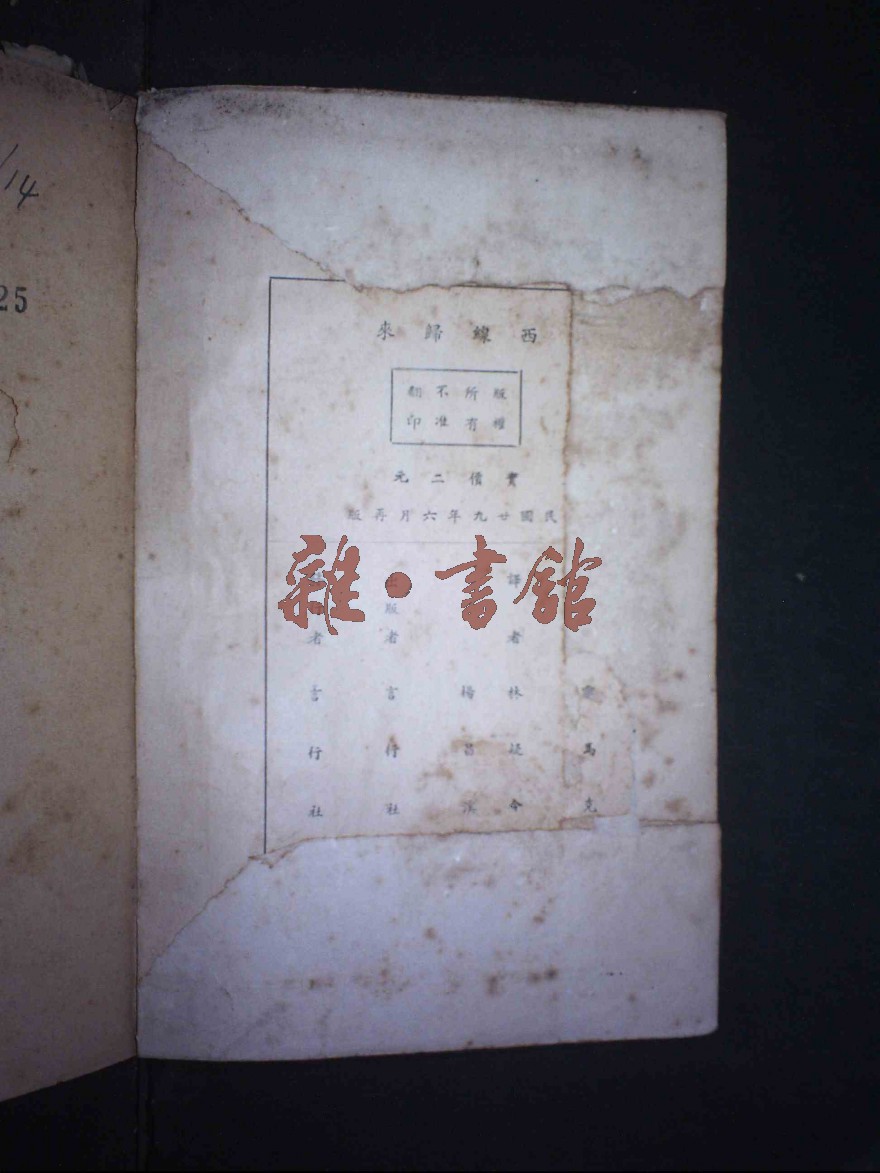 /14
25
西線歸來
版權
所有
不准
翻印
實價二元
民國廿九年六月再版
雷馬克
譯者 林疑今
楊昌溪
版者 言行社
者 言行社
雜·書館